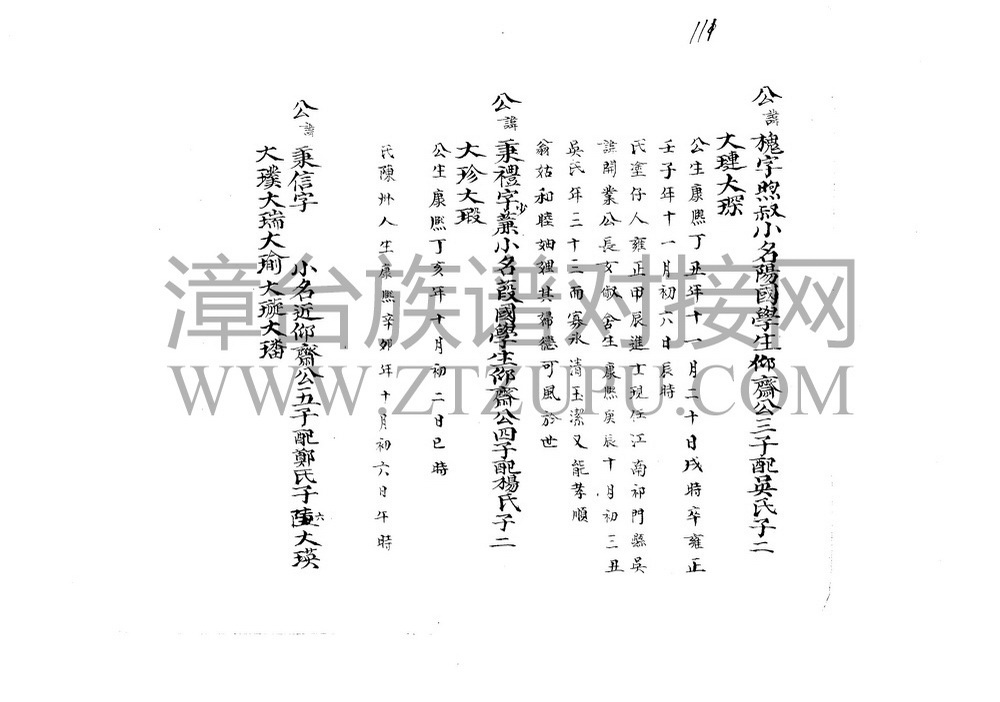 114
公諱槐字煦叔小名陽國學生仰齋公三子配吳氏子二
大璉大琛
公生康熙丁丑年十一月二十日戌時卒雍正
壬子年十一月初六日辰時
氏塗仔人雍正甲辰進士現任江南祁門縣吳
諱開業公長女舍生康熙庚辰十月初三丑
吳氏年三十二而寡氷清玉潔又能孝順
翁姑和睦妯娌其婦德可風於世
公諱秉禮字少蒹小名葭國學生仰齋公四子配楊氏子二
大珍大瑕
公生康熙丁亥年十月初二日巳時
氏陳州人生康熙辛卯年十月初六日午時
公諱秉信字 小名近仰齋公五子配鄭氏子六大瑛
大璞大瑞大瑜大璇大璠
漳台族谱对接网
WWW.ZTZUPU.COM